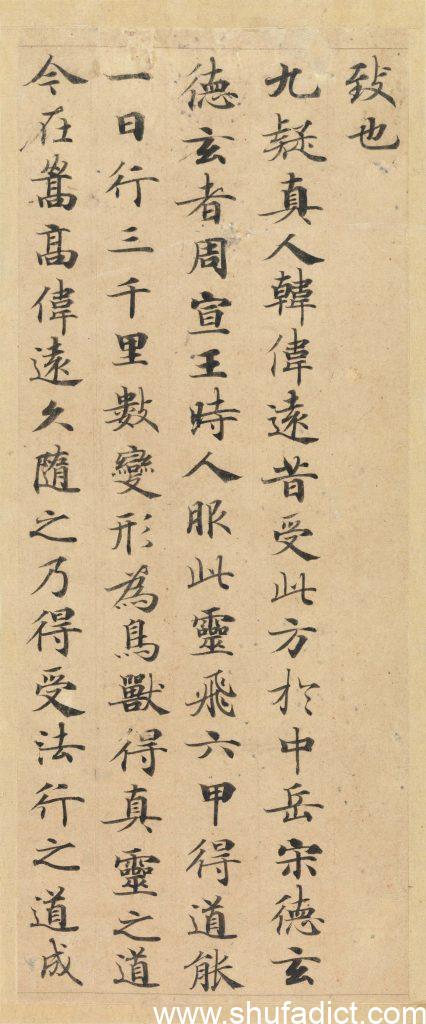 致也
九疑真人韓偉遠昔受此方於中岳宋德玄
德玄者周宣王時人服此靈飛六甲得道能
一日行三千里數變形為鳥獸得真靈之道
今在嵩高偉遠久隨之乃得受法行之道成
www.shufadict.com